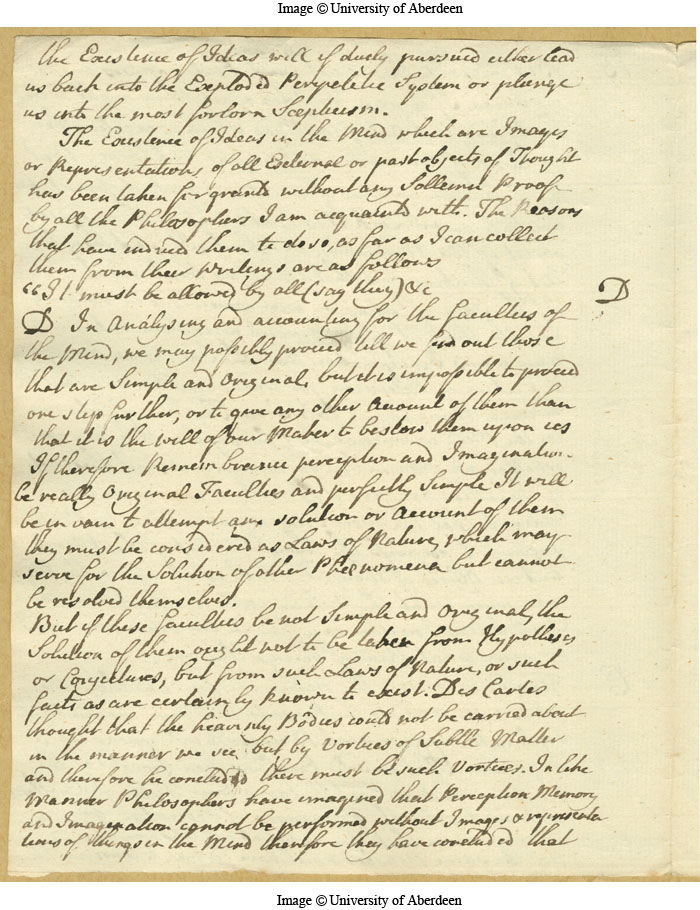 Image © University of Aberdeen
the Existence of Ideas will if duely pursued either lead
us back into the Exploded Peripetetic System or plunge
us into the most forlorn Scepticism.
The Existence of Ideas in the Mind which are Images
or Representations of all External or past objects of Thought
has been taken for granted without any Sollemn Proof
by all the Philosophers I am acquainted with. The Reasons
that have induced them to do so, as far as I can collect
them from their writings are as follows
“It must be allowed by all (say they) &c
D
D In Analysing and accounting for the faculties of
the Mind, we may possibly proceed till we find out those
that are Simple and Original, but it is impossible to proceed
one step further, or to give any other Account of them than
that it is the will of our Maker to bestow them upon us
If therefore Remembrance perception and Imagination
be really Original Faculties and perfectly Simple It will
be in vain to attempt any solution or Account of them
they must be considered as Laws of Nature, which may
serve for the Solution of other Phænomena but cannot
be resolved themselves.
But if these faculties be not Simple and Original, the
Solution of them ought not to be taken from Hypotheses
or Conjectures, but from such Laws of Nature, or such
facts as are certainly known to exist. Des Cartes
thought that the heavenly Bodies could not be carried about
in the manner we see but by Vortices of Subtle Matter
and therefore he concluded there must be such Vortices. In like
Manner Philosophers have imagined that Perception Memory
and Imagination cannot be performed without Images or representa
tions of things in the Mind therefore they have concluded that
Image © University of Aberdeen